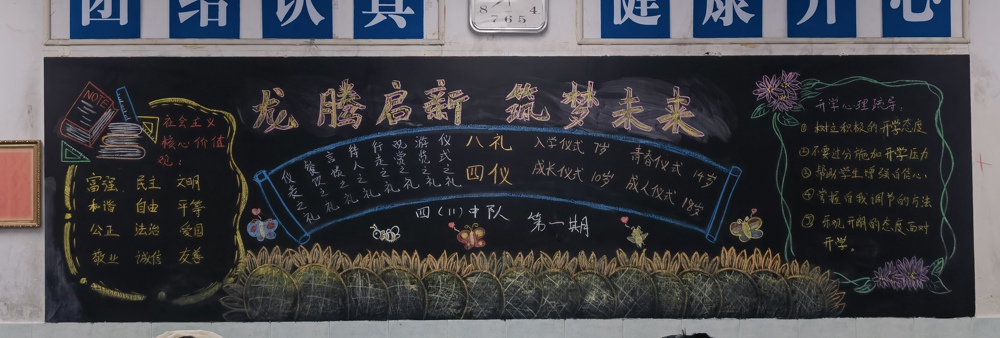 团结认真
健康开心
8 4
7 6 5
龙腾启新 筑梦未来
NOTE
社会主义
核心价值
观:
富强 民主 文明
和谐 自由 平等
公正 法治 爱国
敬业 诚信 友善
仪表之礼
餐饮之礼
言谈之礼
待人之礼
行走之礼
观赏之礼
游览之礼
仪式之礼
八礼
四仪
入学仪式 7岁
成长仪式 10岁
青春仪式 14岁
成人仪式 18岁
四(11)中队 第一期
开学心理疏导:
① 树立积极的开学态度
②不要过分施加开学压力
③帮助学生增强自信心:
④掌握自我调节的方法
⑤乐观开朗的态度面对
开学。